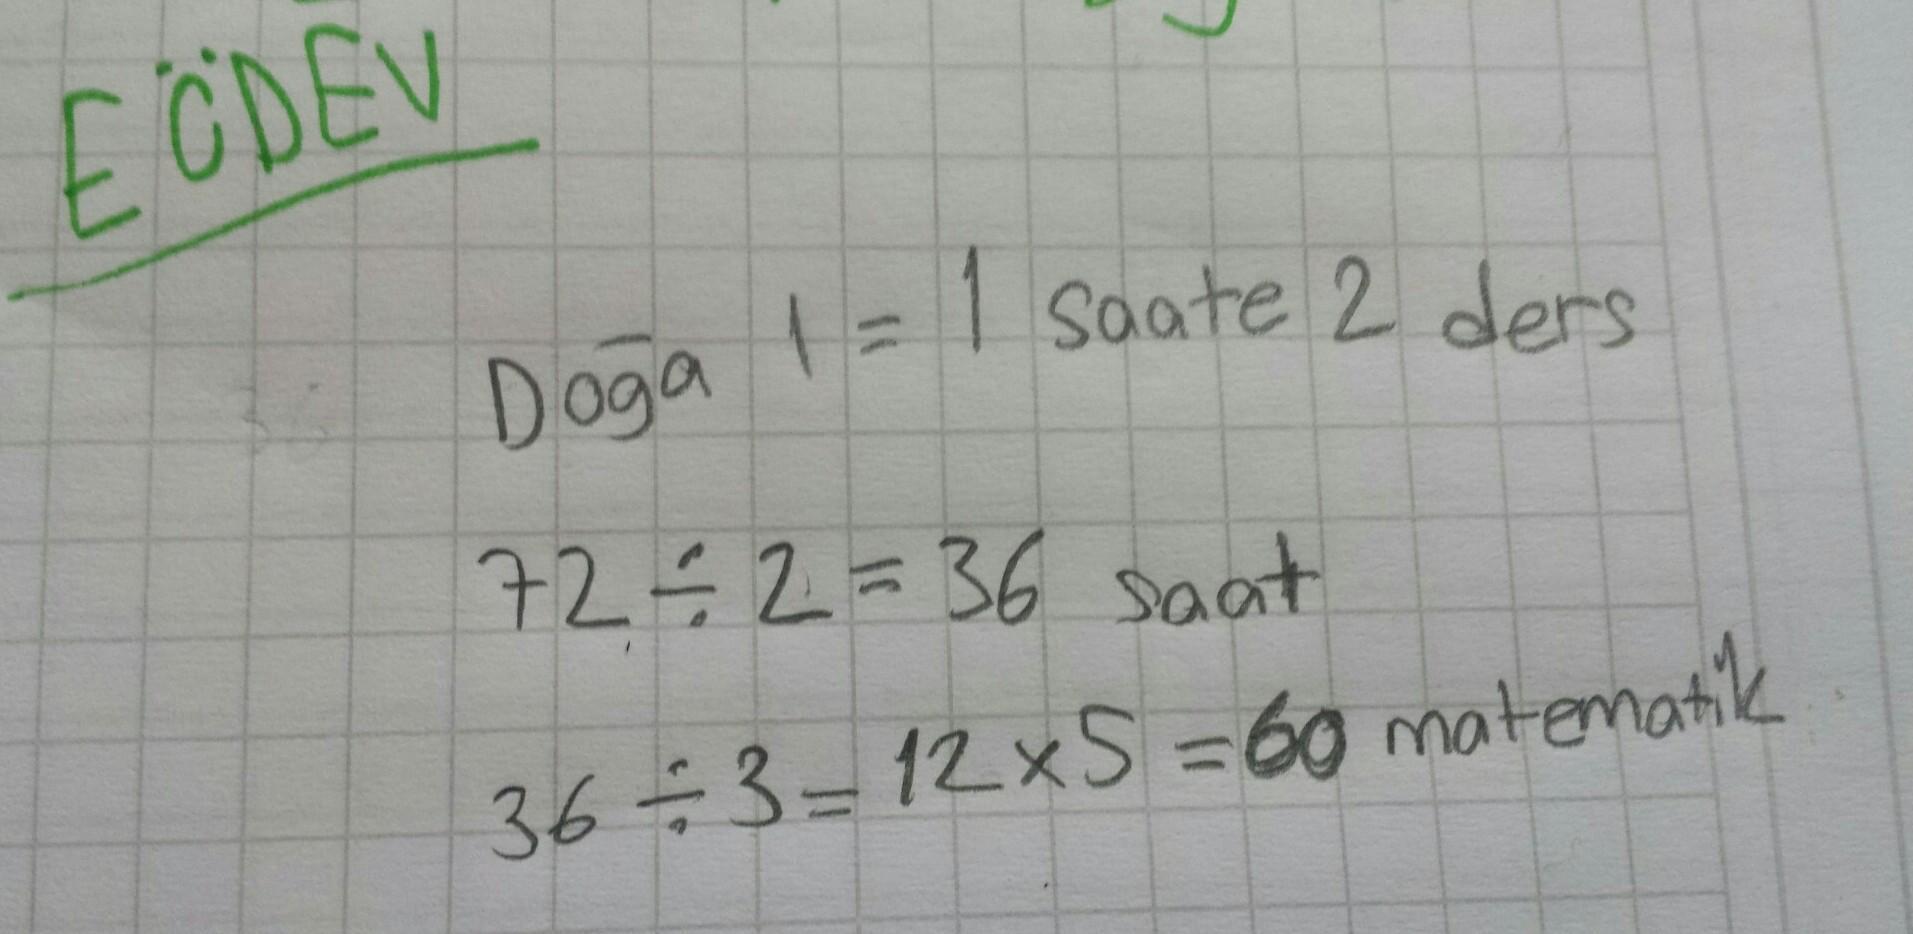 EÖDEV
Doğa 1 = 1 saate 2 ders
72 ÷ 2 = 36 saat
36 ÷ 3 = 12 x 5 = 60 matematik